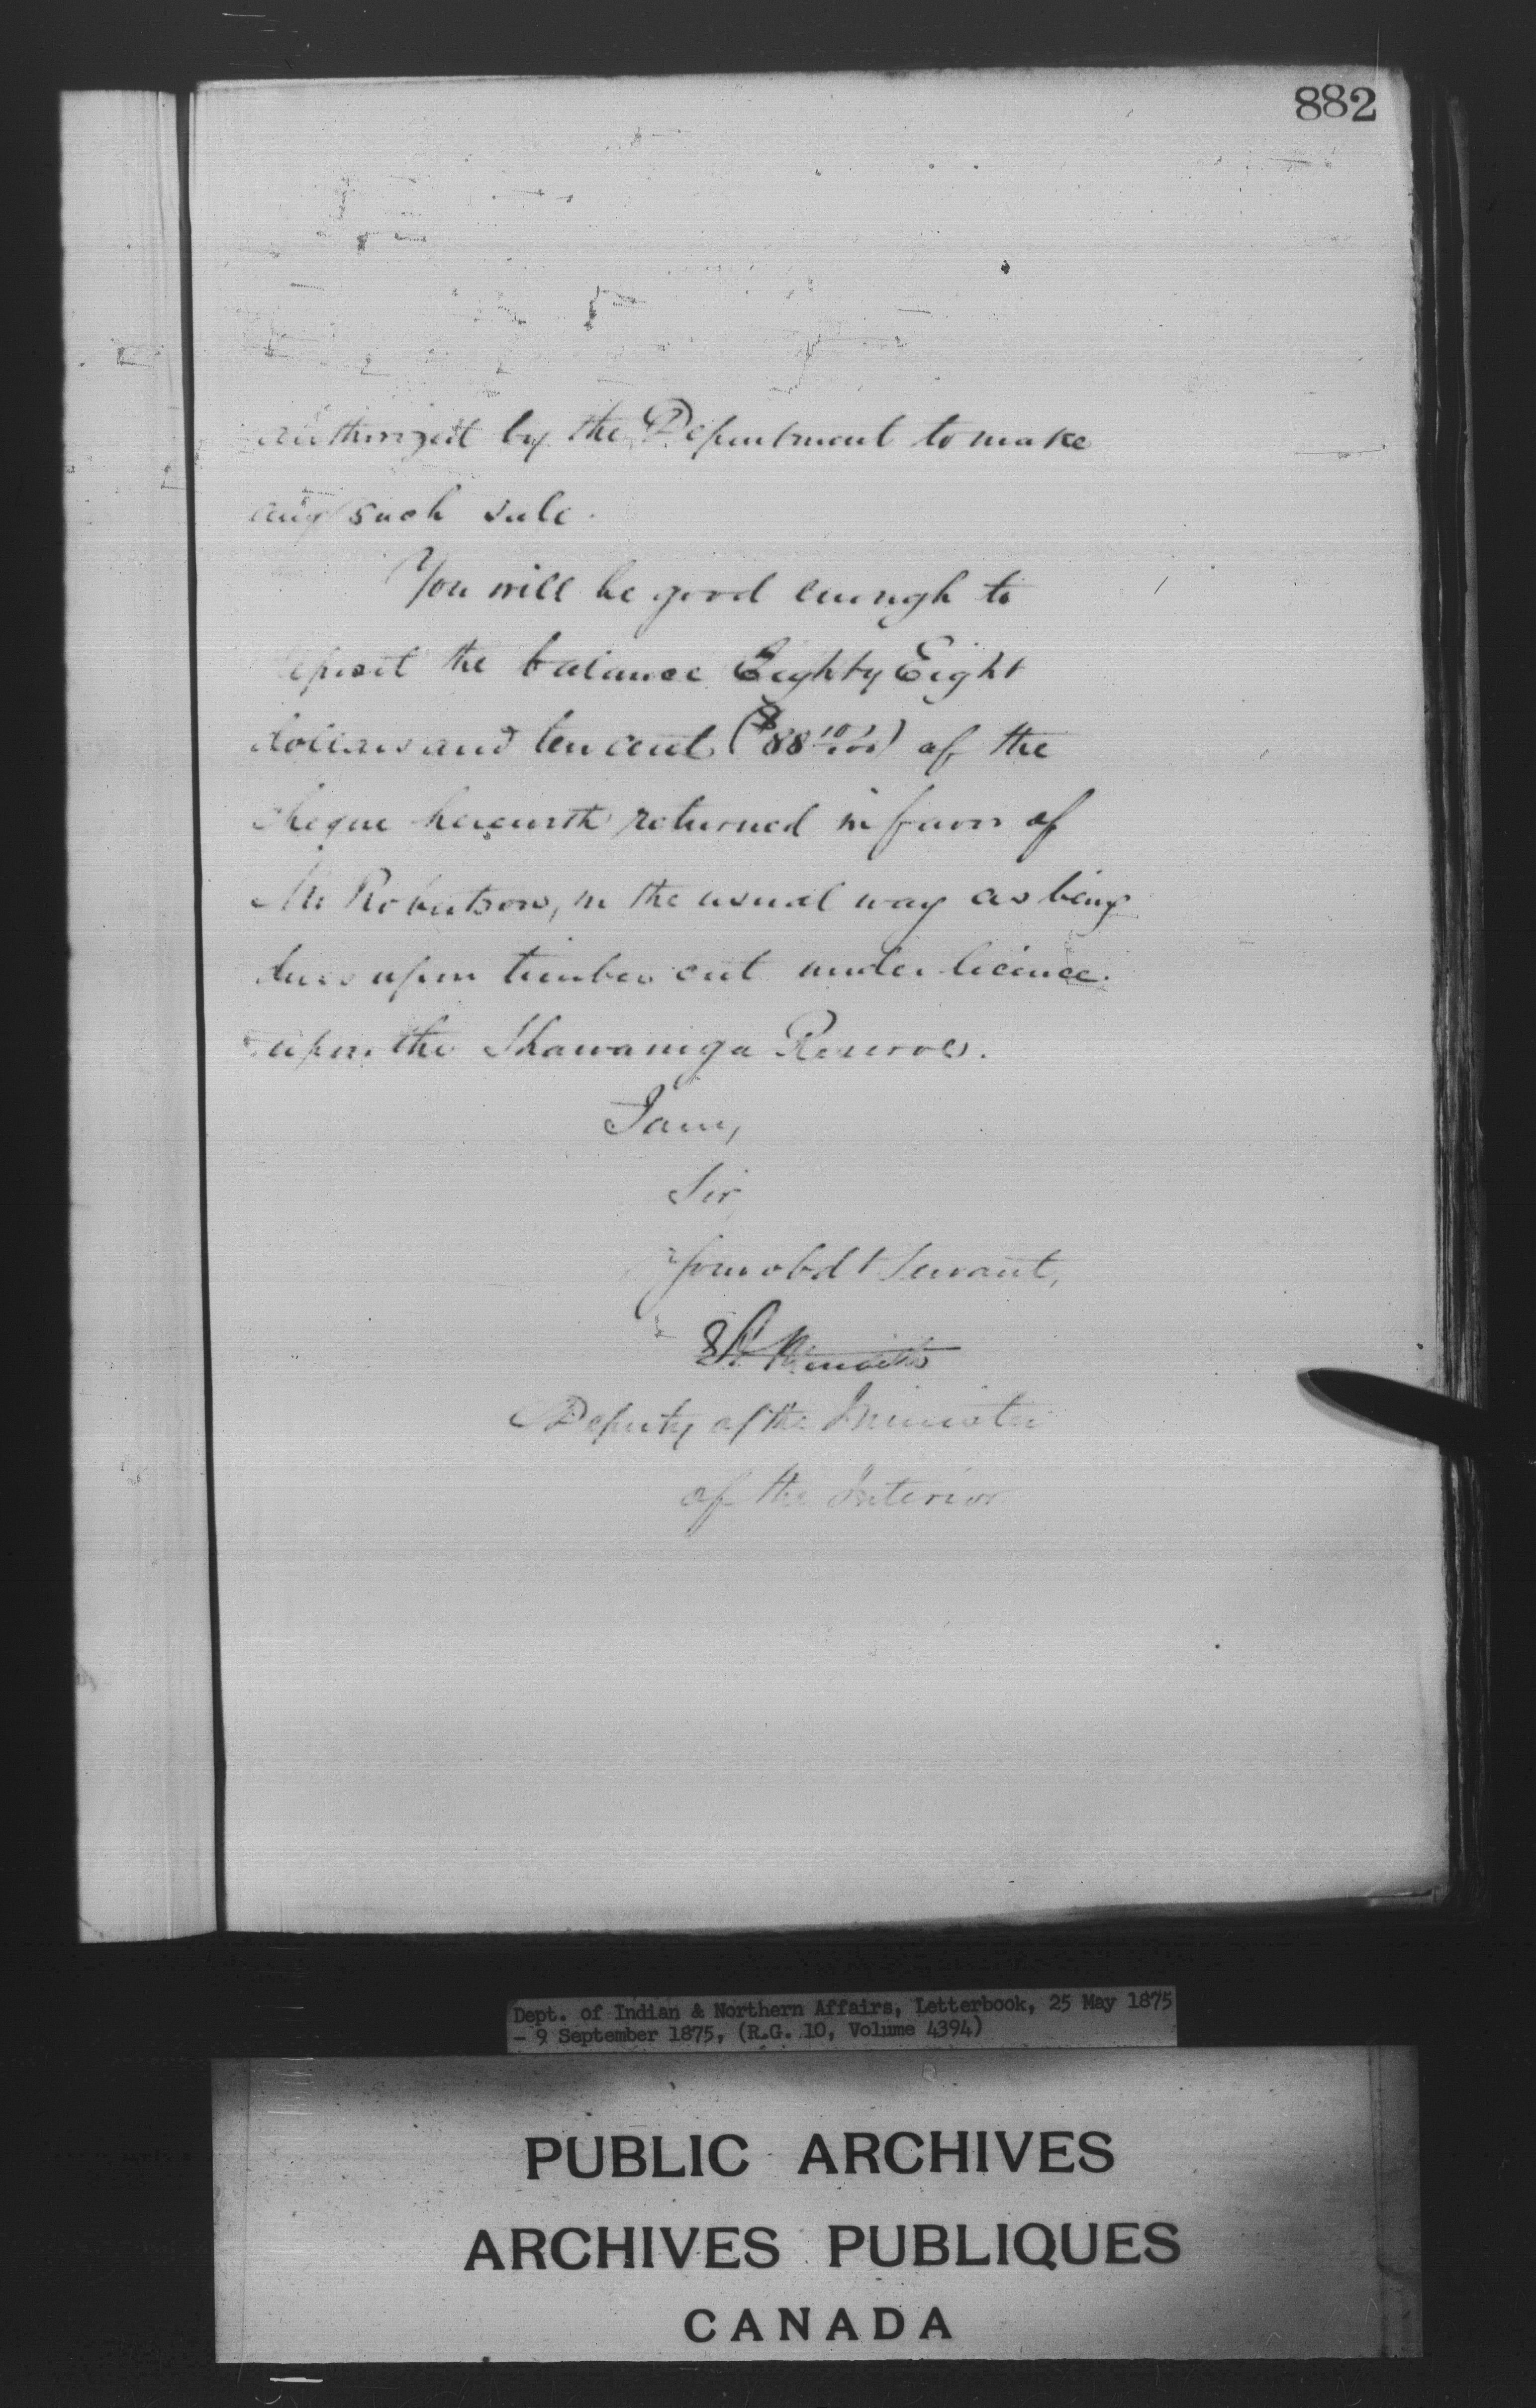 882
authorized by the Department to make
any such sale.
You will be good enough to
deposit the balance Eighty Eight
dollars and ten cents ($88 10/100) of the
cheque herewith returned in favor of
Mr Robertson, in the usual way as being
dues upon timber cut under licence
upon the Shawaniga Reserve.
I am,
Sir
Your obdt Servant,
Deputy of the Minister
of the Interior
Dept. of Indian & Northern Affairs, Letterbook, 25 May 1875
- 9 September 1875, (R.G. 10, Volume 4394)
PUBLIC ARCHIVES
ARCHIVES PUBLIQUES
CANADA